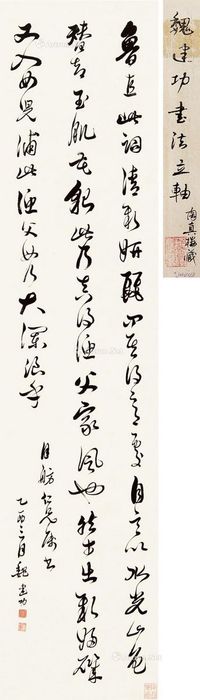 魏建功書法立軸
魯直此詞清新妍麗問其得意處自言以水光山色
替却玉肌花貌此乃真得漁父家風也然才出新婦磯
又入女兒浦此漁父無乃大瀾浪乎
仁兄屬書
乙酉三月魏建功